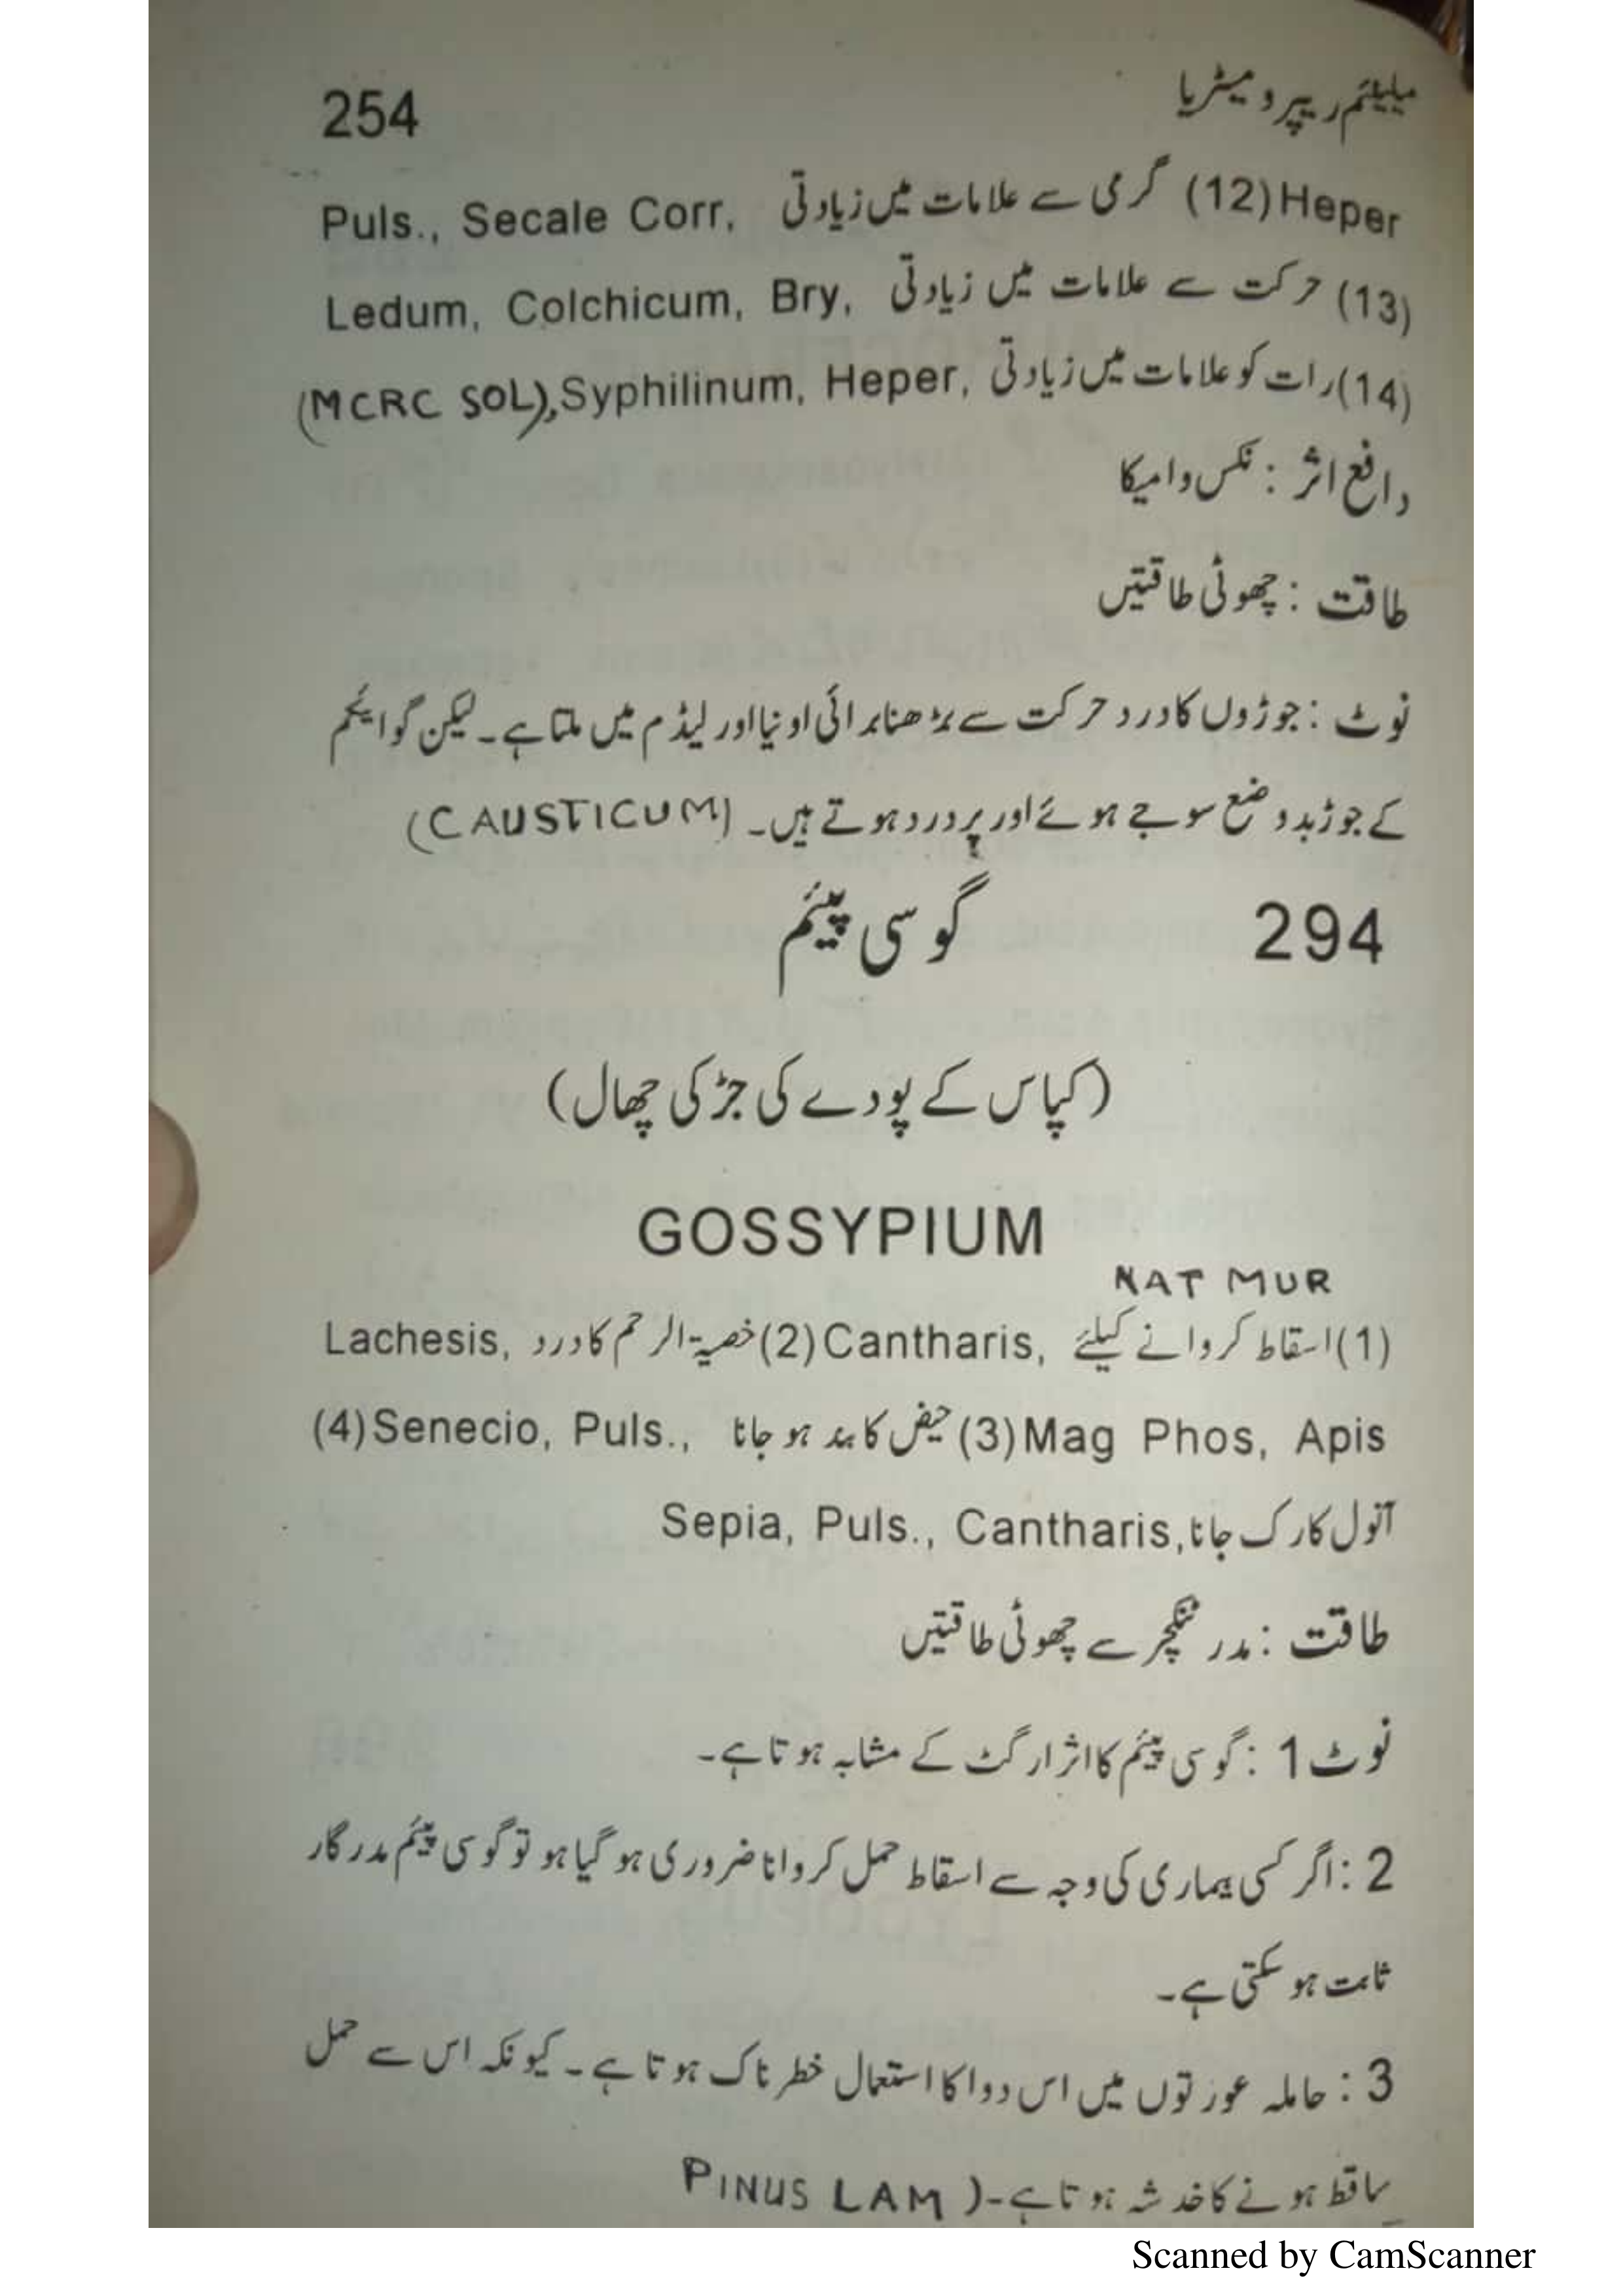 میلیئم ریپرو میٹریا 254
Heper(12) گرمی سے علامات میں زیادتی Puls., Secale Corr,
(13) حرکت سے علامات میں زیادتی Ledum, Colchicum, Bry,
(14) رات کو علامات میں زیادتی Syphilinum, Heper, (MCRC SOL),
دافع اثر : نکس وامیکا
طاقت : چھوٹی طاقتیں
نوٹ : جوڑوں کا درد حرکت سے بڑھنا برائی اونیا اور لیڈم میں ملتا ہے۔ لیکن گوائیکم
کے جوڑ بد وضع سوجے ہوئے اور پر درد ہوتے ہیں۔ (CAUSTICUM)
294 گوسی پیئم
(کپاس کے پودے کی جڑ کی چھال)
GOSSYPIUM
NAT MUR
(1) اسقاط کروانے کیلئے Cantharis, (2) خصیۃ الرحم کا درد Lachesis,
Mag Phos, Apis (3) حیض کا بند ہو جانا Senecio, Puls., (4)
آنول کا رک جانا Sepia, Puls., Cantharis,
طاقت : مدر ٹنکچر سے چھوٹی طاقتیں
نوٹ 1 : گوسی پیئم کا اثر ارگٹ کے مشابہ ہوتا ہے۔
2 : اگر کسی بیماری کی وجہ سے اسقاط حمل کروانا ضروری ہو گیا ہو تو گوسی پیئم مددگار
ثابت ہو سکتی ہے۔
3 : حاملہ عورتوں میں اس دوا کا استعمال خطرناک ہوتا ہے۔ کیونکہ اس سے حمل
ساقط ہونے کا خدشہ ہوتا ہے۔ (PINUS LAM
Scanned by CamScanner